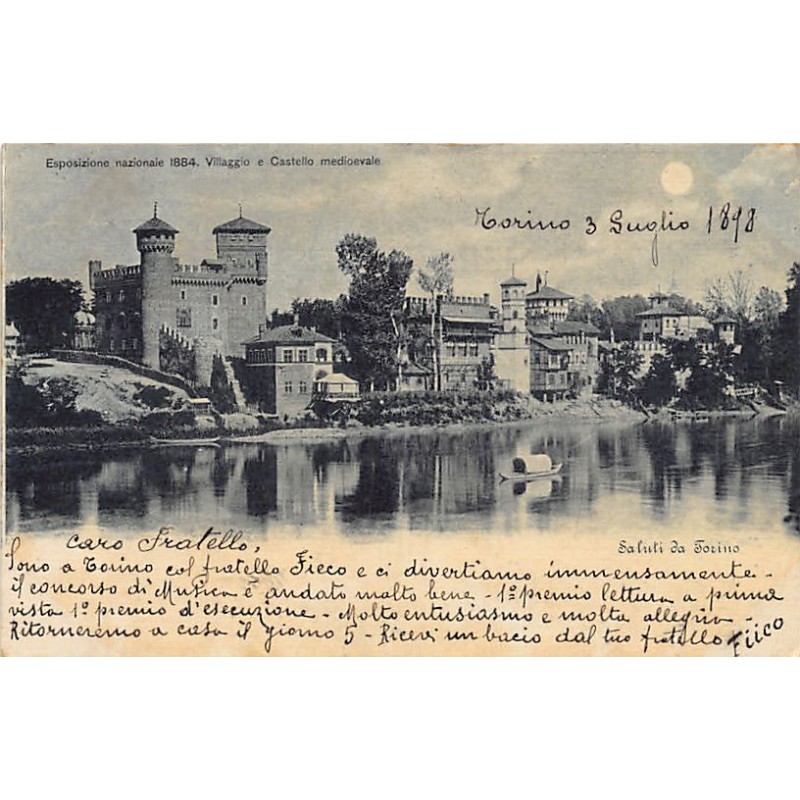 Esposizione nazionale 1884. Villaggio e Castello medioevale
Torino 3 Luglio 1898
Saluti da Torino
caro Fratello,
Sono a Torino col fratello Fieco e ci divertiamo immensamente -
il concorso di Musica è andato molto bene - 1º premio lettura a prima
vista 1º premio d'esecuzione - Molto entusiasmo e molta allegria -
Ritorneremo a casa il giorno 5 - Ricevi un bacio dal tuo fratello